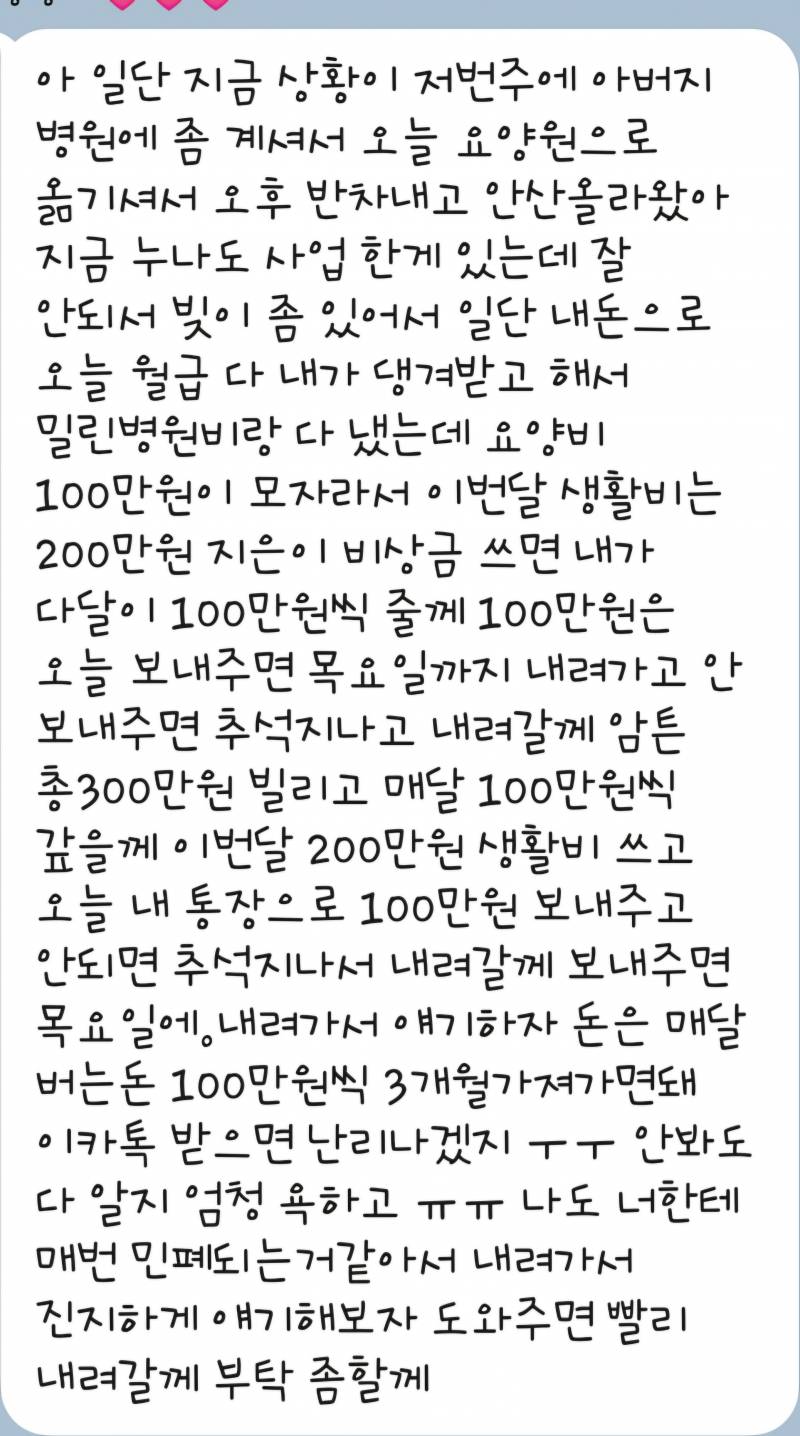 아 일단 지금 상황이 저번주에 아버지
병원에 좀 계셔서 오늘 요양원으로
옮기셔서 오후 반차내고 안산올라왔아
지금 누나도 사업 한게 있는데 잘
안되서 빚이 좀 있어서 일단 내돈으로
오늘 월급 다 내가 댕겨받고 해서
밀린병원비랑 다 냈는데 요양비
100만원이 모자라서 이번달 생활비는
200만원 지은이 비상금 쓰면 내가
다달이 100만원씩 줄께 100만원은
오늘 보내주면 목요일까지 내려가고 안
보내주면 추석지나고 내려갈께 암튼
총300만원 빌리고 매달 100만원씩
갚을께 이번달 200만원 생활비 쓰고
오늘 내 통장으로 100만원 보내주고
안되면 추석지나서 내려갈께 보내주면
목요일에。내려가서 얘기하자 돈은 매달
버는돈 100만원씩 3개월가져가면돼
이카톡 받으면 난리나겠지 ㅜㅜ 안봐도
다 알지 엄청 욕하고 ㅠㅠ 나도 너한테
매번 민폐되는거같아서 내려가서
진지하게 얘기해보자 도와주면 빨리
내려갈께 부탁 좀할께